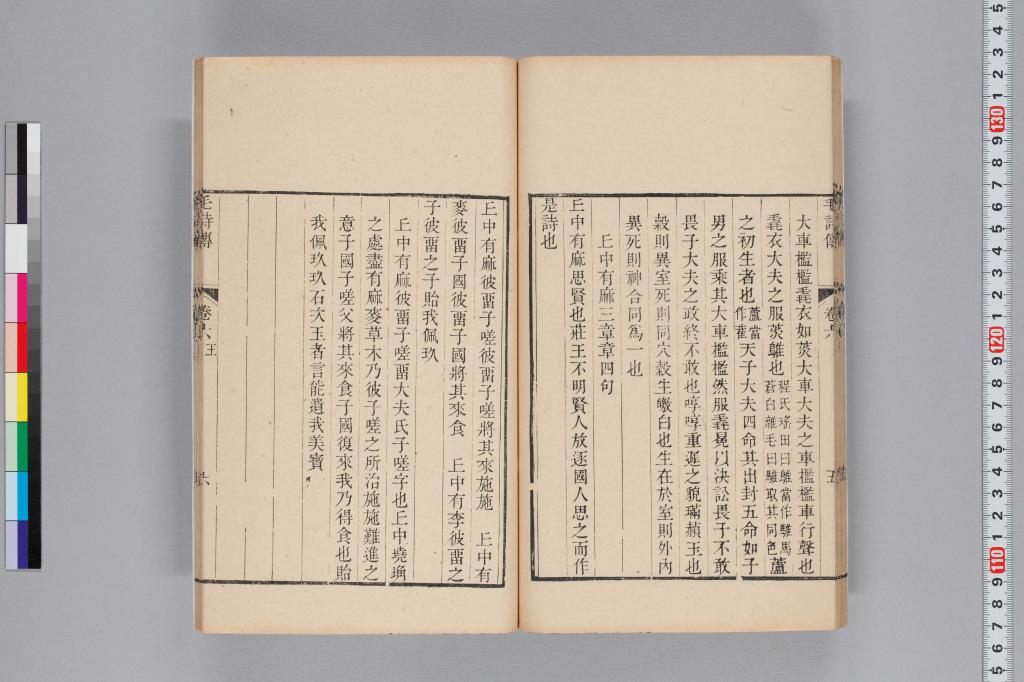 大車檻檻毳衣如菼大車大夫之車檻檻車行聲也
毳衣大夫之服菼鵻也程氏瑤田曰鵻當作騅馬蒼白雜毛曰騅取其同色蘆
之初生者也蘆當作雚天子大夫四命其出封五命如子
男之服乘其大車檻檻然服毳冕以決訟畏子不敢
畏子大夫之政終不敢也啍啍重遲之貌璊赬玉也
穀則異室死則同穴穀生皦白也生在於室則外內
異死則神合同為一也
丘中有麻三章章四句
丘中有麻思賢也莊王不明賢人放逐國人思之而作
是詩也
丘中有麻彼畱子嗟彼畱子嗟將其來施施 丘中有
麥彼畱子國彼畱子國將其來食 丘中有李彼畱之
子彼畱之子貽我佩玖
丘中有麻彼畱子嗟畱大夫氏子嗟字也丘中墝埆
之處盡有麻麥草木乃彼子嗟之所治施施難進之
意子國子嗟父將其來食子國復來我乃得食也貽
我佩玖玖石次玉者言能遺我美寶
毛詩傳
卷六
五
毛詩傳
卷六 王
六